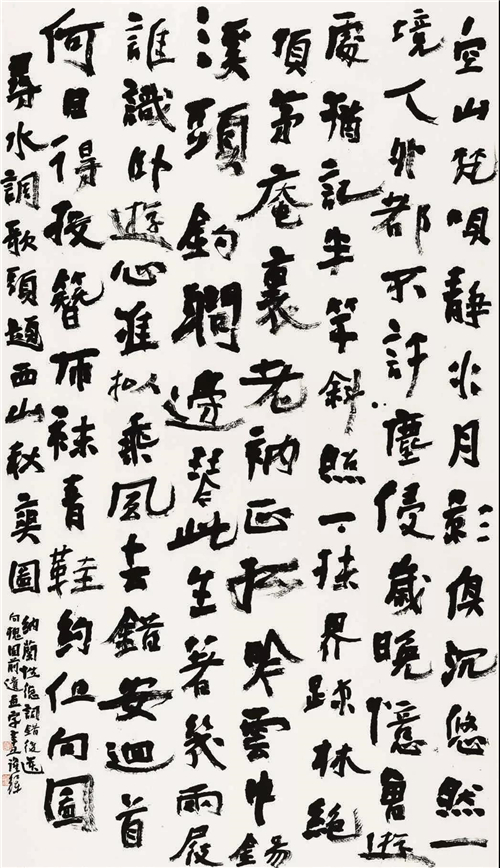 空山梵唄靜水月影俱沉悠然一
境人外都不許塵侵歲晚憶曾遊
處猶記半竿斜照一抹界疎林絕
頂茅庵裏老衲正孤吟雲中錫
溪頭釣澗邊琴此生著幾兩屐
誰識卧遊心准拟乘風去錯安迴首
何日得投簪布袜青鞋約但向圖
尋水調歌頭題西山秋爽圖
納蘭性德詞錯後遺
向槐圖前遺畫字